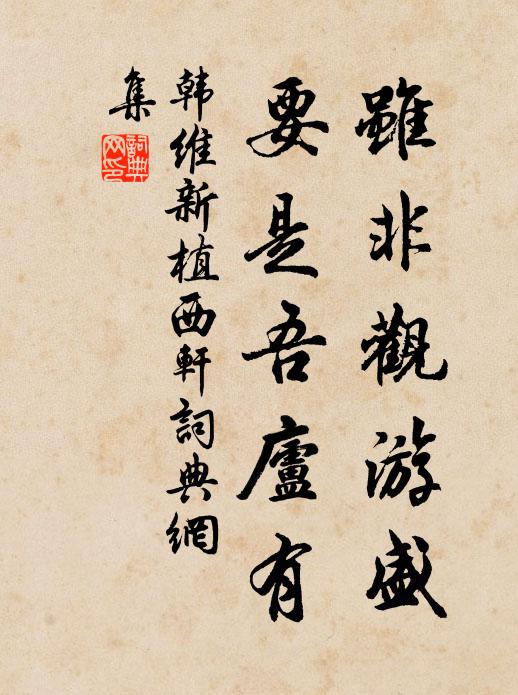 雖非觀游盛
要是吾廬有
韩维新植西軒詞典網
集
詞典网印